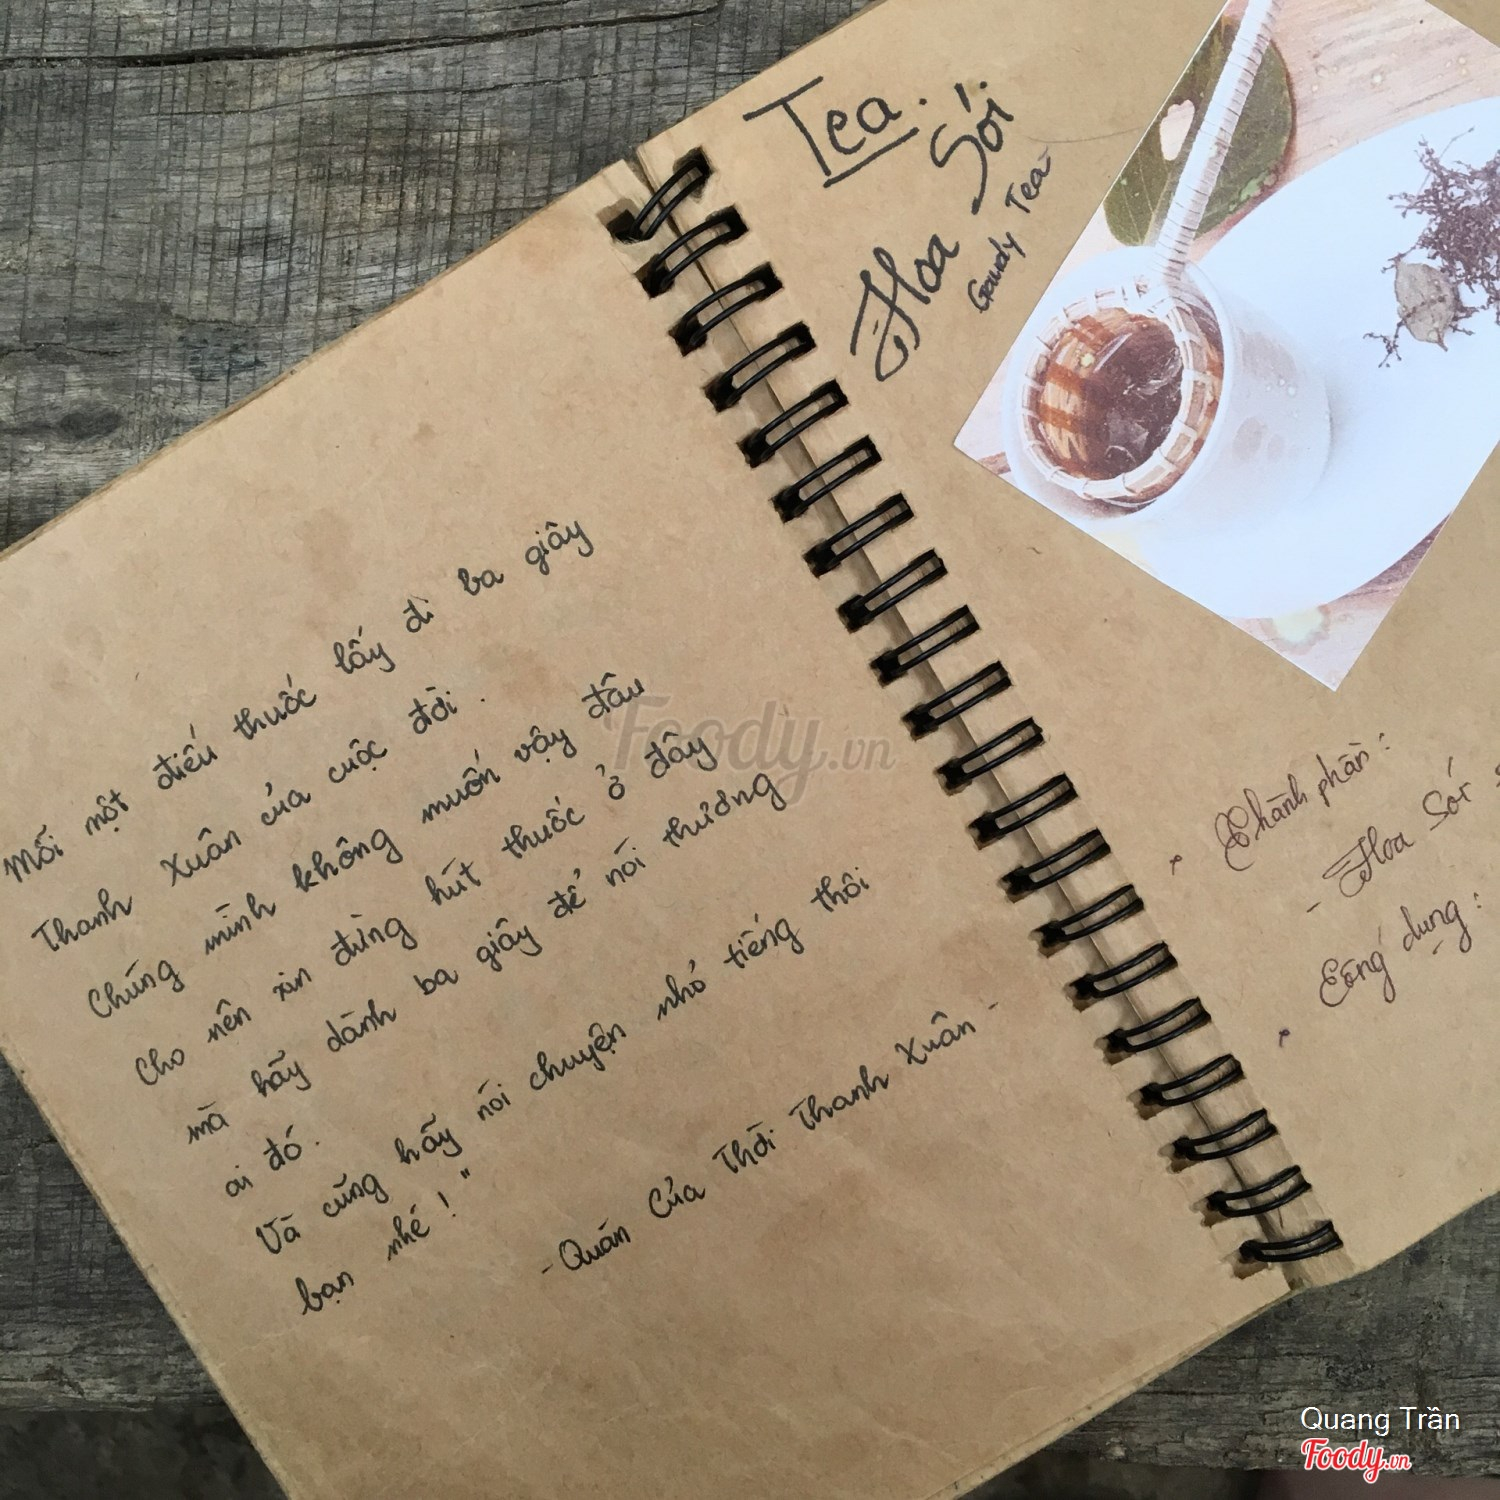 Mỗi một điếu thuốc lấy đi ba giây
Thanh Xuân của cuộc đời.
Chúng mình không muốn vậy đâu
Cho nên xin đừng hút thuốc ở đây
mà hãy dành ba giây để nói thương
ai đó.
Và cũng hãy nói chuyện nhỏ tiếng thôi
bạn nhé!"
- Quán Của Thời Thanh Xuân -
Tea.
Hoa Sói
Gaudy Tea
Thành phần:
- Hoa Sói
Công dụng:
Foody.vn
Quang Trần
Foody.vn